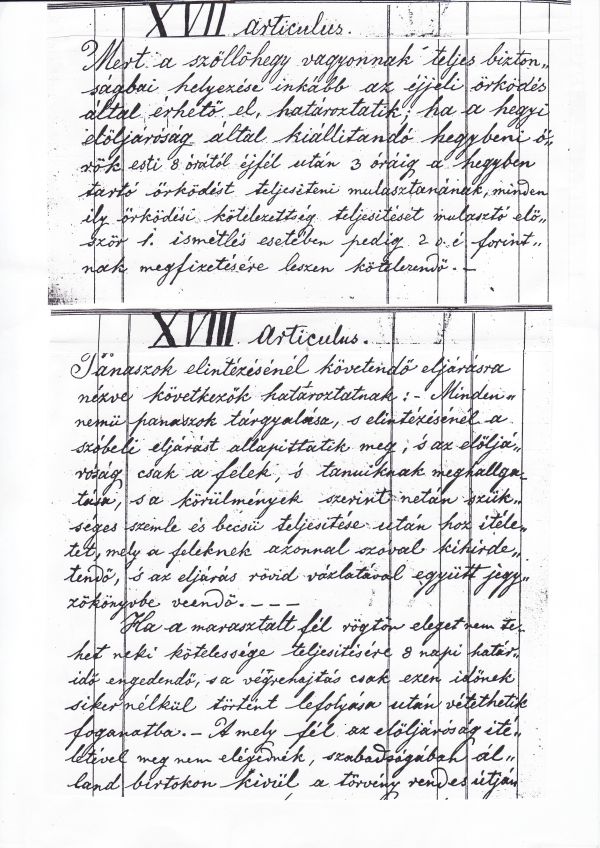 XVII Articulus.
Mert a szöllöhegy vagyonnak teljes bizton„
ságbai helyezése inkább az éjjeli örködés
által érhetö el, határoztatik; ha a hegyi
elöljáróság által kiállitandó hegybeni ö„
rök esti 8 órától éjfél után 3 óráig a hegyben
tartó örködést teljesiteni mulasztanának, minden
ily örködési kötelezettség teljesitését mulasztó elö„
ször 1. ismétlés esetében pedig 2 o. é forint„
nak megfizetésére leszen kötelezendö. —
XVIII Articulus.
Panaszok elintézésénél követendö eljárásra
nézve következök határoztatnak: – Minden„
nemü panaszok tárgyalása, s elintézésénél a
szóbeli eljárást allapittatik meg; s az elöljá„
róság csak a felek, s tanuiknak meghallga„
tása, s a körülmények szerint netán szük„
séges szemle és becsü teljesitése után hoz itéle„
tet, mely a feleknek azonnal szóval kihirde„
tendö, s az eljárás rövid vázlatával együtt jegy„
zökönyvbe veendö. – – – –
Ha a marasztalt fél rögtön eleget nem te„
het neki kötelessége teljesitésére 8 napi határ„
idö engedendö, s a végrehajtás csak ezen idönek
siker nélkül történt lefolyása után vétethetik
foganatba. – A mely fél az elöljáróság ité„
letével meg nem elégednék, szabadságában ál„
land birtokon kivül a törvény rendes útján